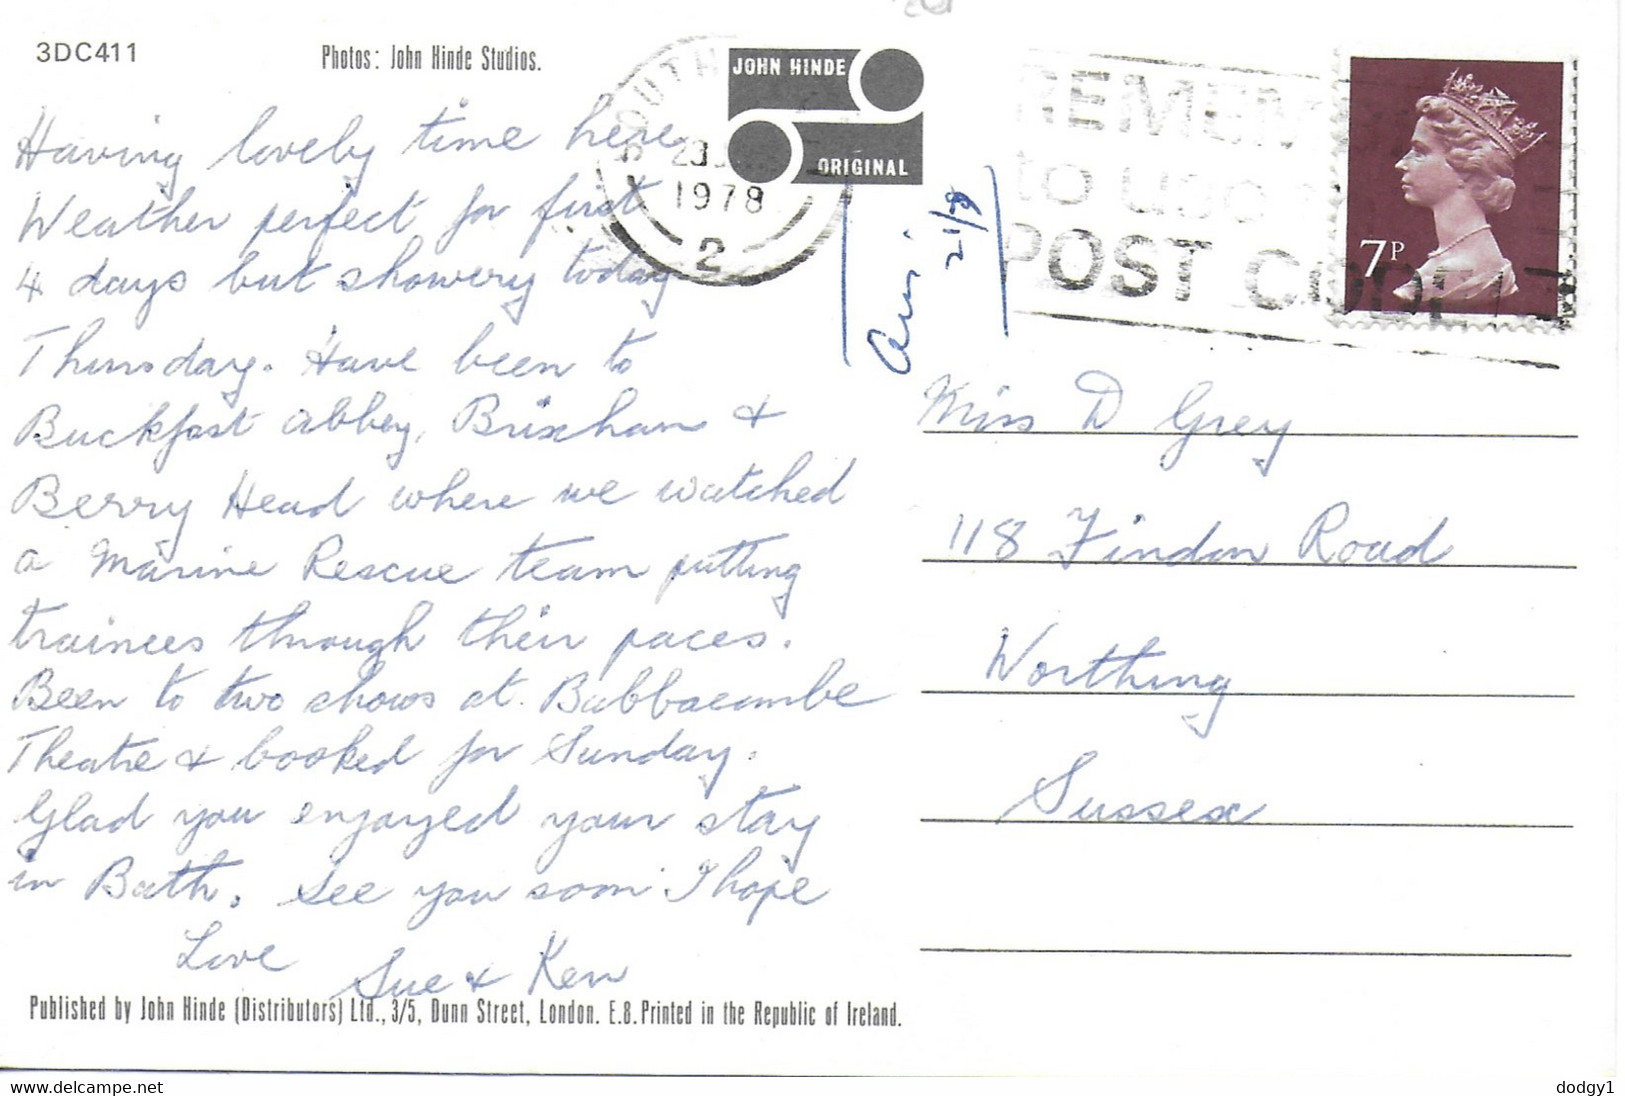 3DC411
Photos: John Hinde Studios.
JOHN HINDE
ORIGINAL
SOUTH
1978
2
REMEM
to use
POST CODE
7P
21/8
Having lovely time here.
Weather perfect for first
4 days but showery today
Thursday. Have been to
Buckfast Abbey, Brixham &
Berry Head where we watched
a Marine Rescue team putting
trainees through their paces.
Been to two shows at Babbacombe
Theatre & booked for Sunday.
Glad you enjoyed your stay
in Bath. See you soon I hope
Love
Sue & Ken
Miss D Grey
118 Findon Road
Worthing
Sussex
Published by John Hinde (Distributors) Ltd., 3/5, Dunn Street, London. E.8. Printed in the Republic of Ireland.
www.delcampe.net
dodgy1